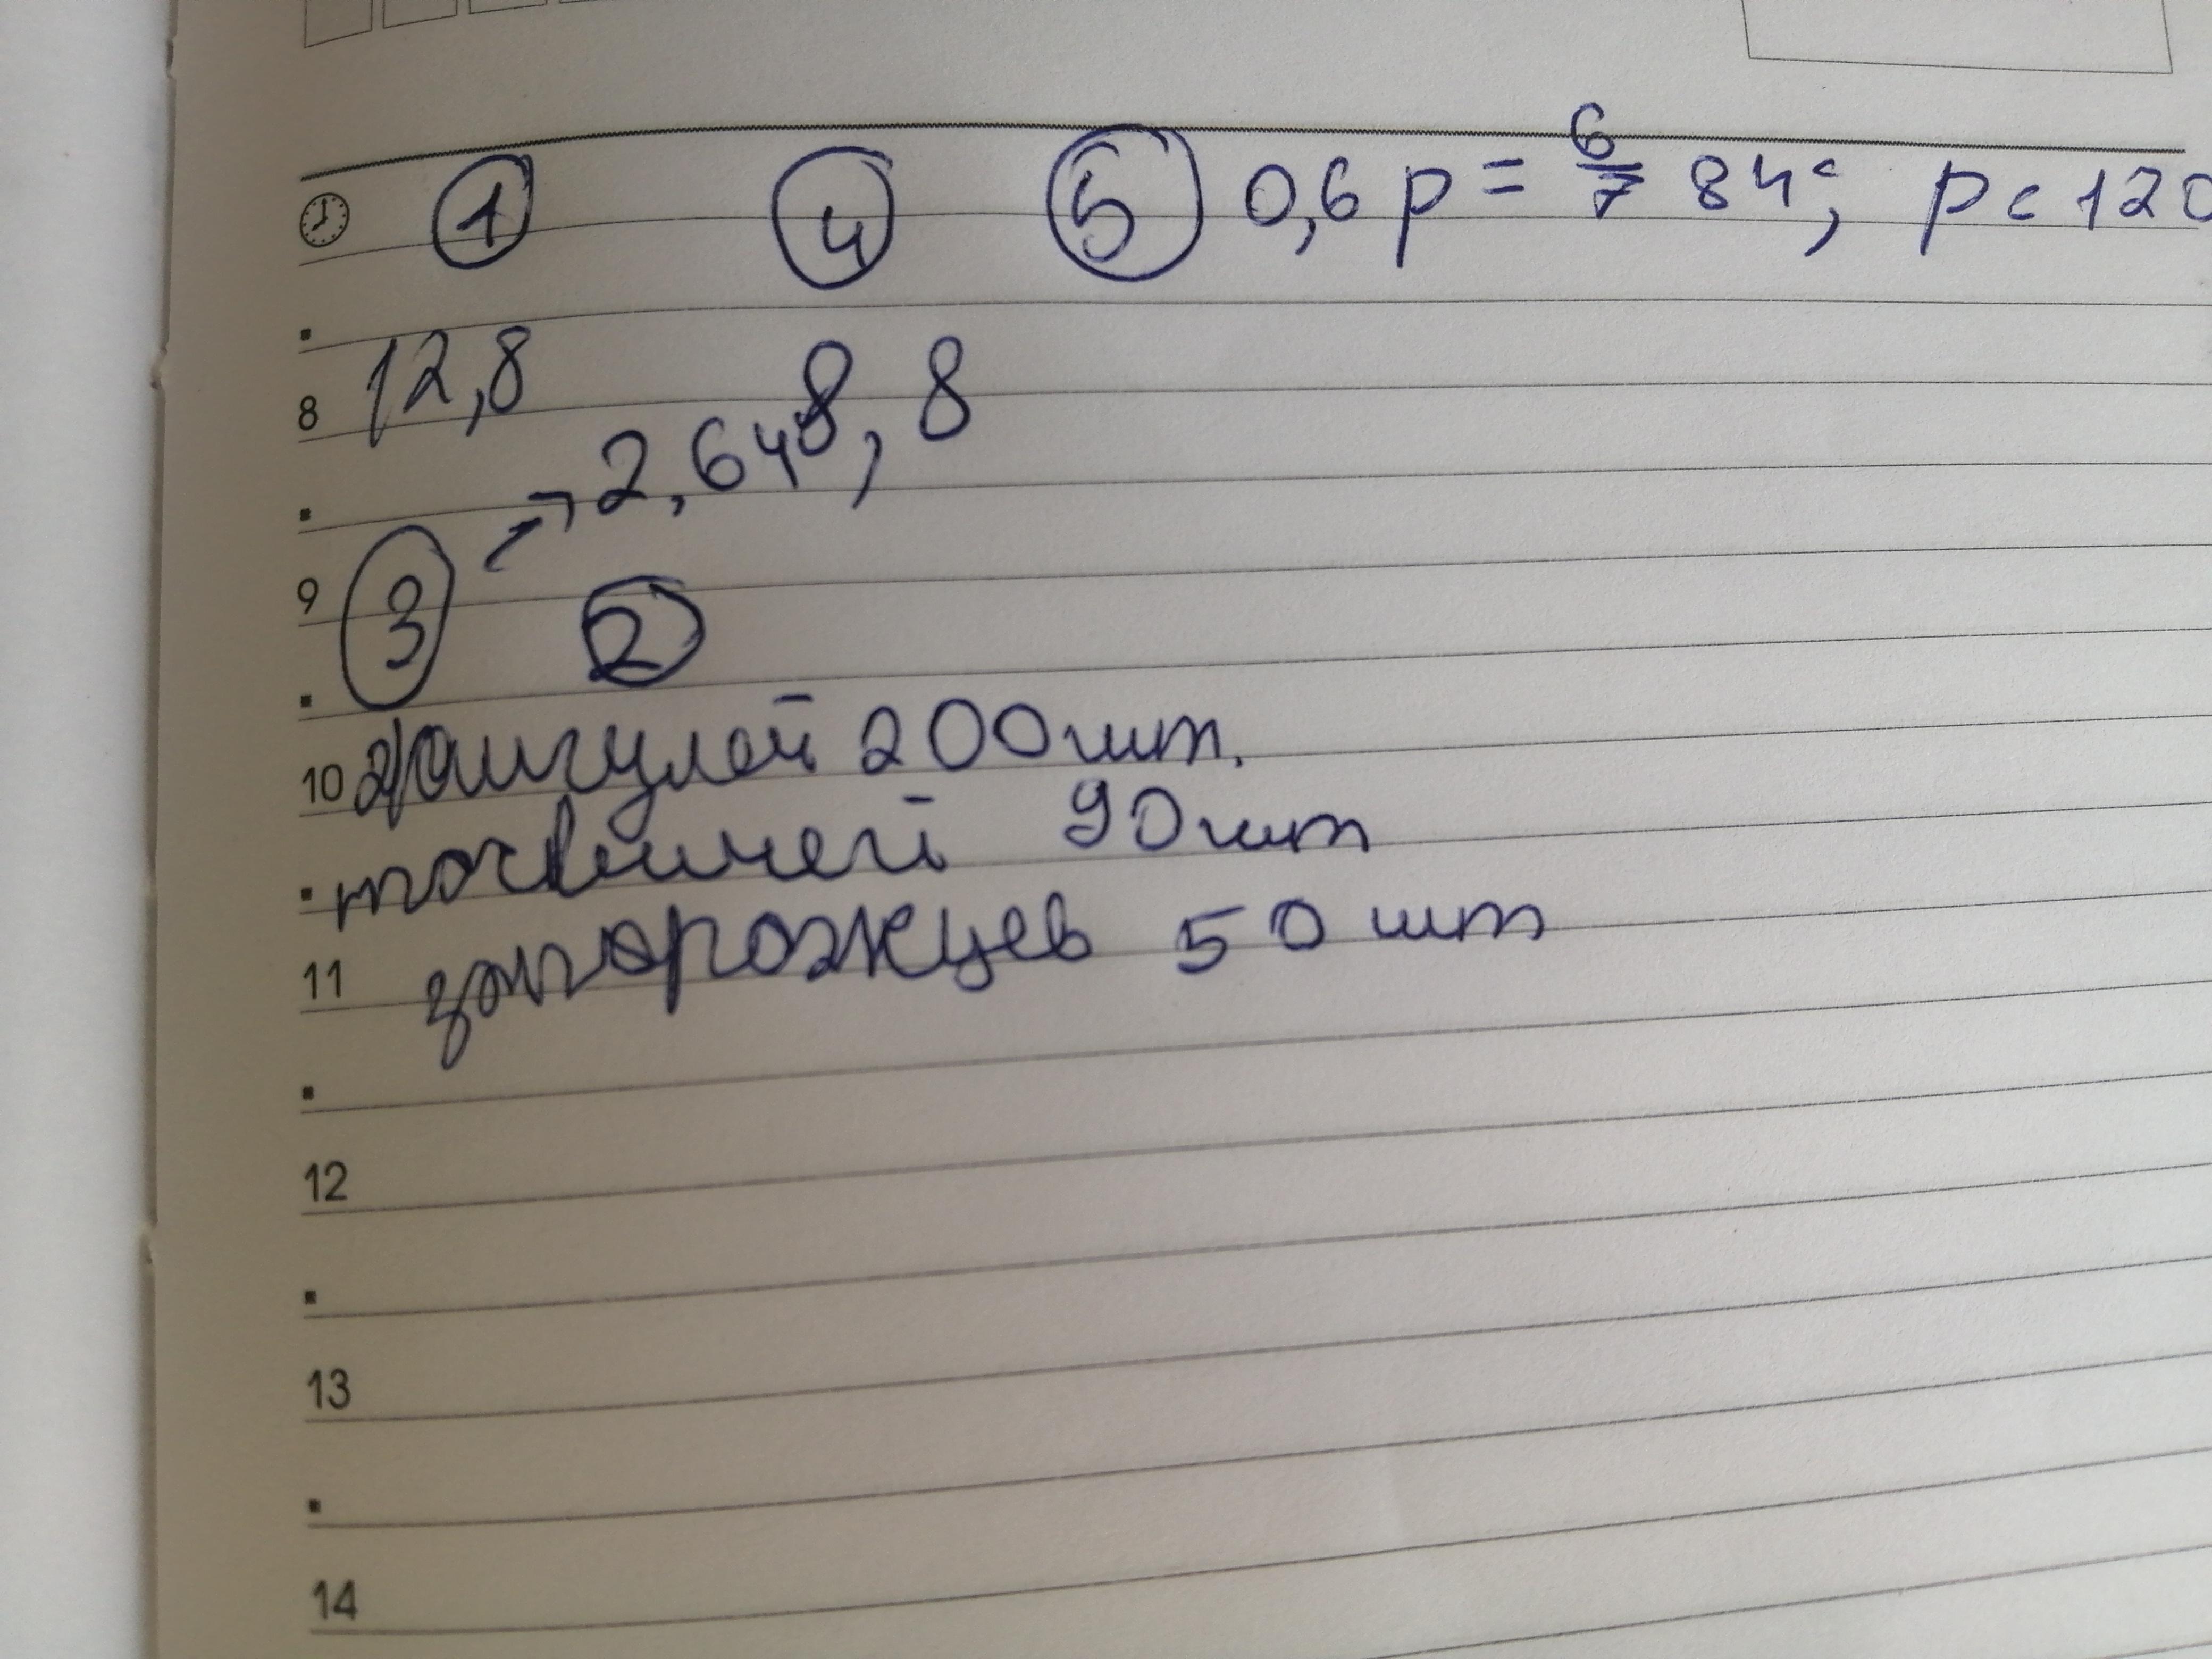 1 4 5 0,6 р = 6/7 84; р = 120
8 12,8 8,8
9 3 → 2,64
2
10 жигулей 200 шт.
москвичей 90 шт
11 запорожцев 50 шт
12
13
14